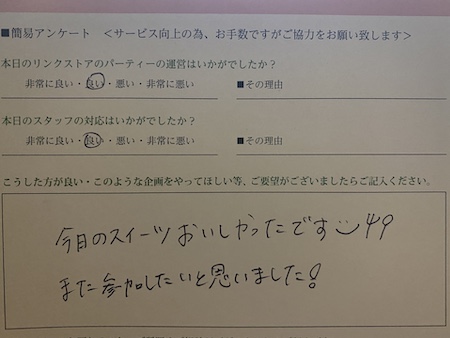 ■簡易アンケート <サービス向上の為、お手数ですがご協力をお願い致します>
本日のリンクストアのパーティーの運営はいかがでしたか?
非常に良い・良い・悪い・非常に悪い ■その理由
本日のスタッフの対応はいかがでしたか?
非常に良い・良い・悪い・非常に悪い ■その理由
こうした方が良い・このような企画をやってほしい等、ご要望がございましたらご記入ください。
今日のスイーツおいしかったです
また参加したいと思いました!